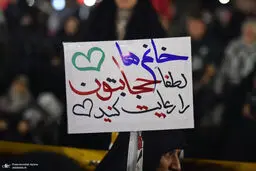 خانم ها
لطفا حجابتون
را رعایت کنید